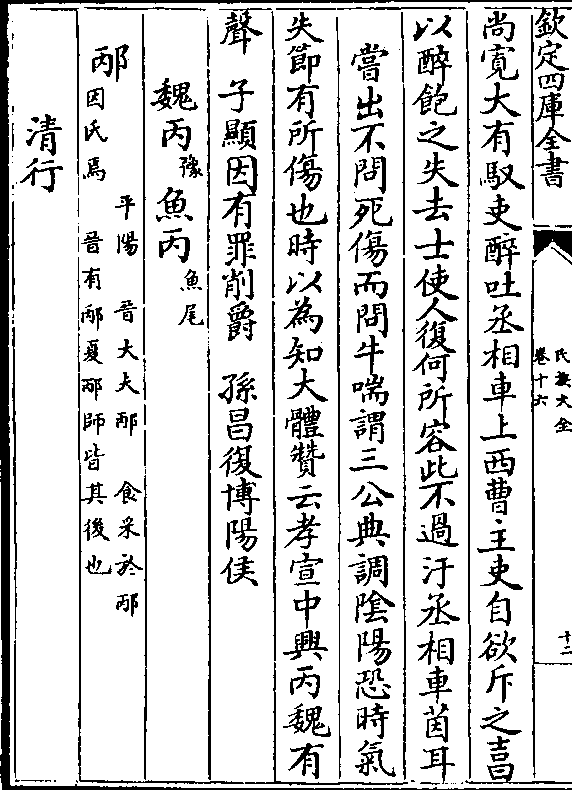 欽定四庫全書
氏族大全
卷十六
十二
尚寛大有馭吏醉吐丞相車上西曹主吏自欲斥之吉曰
以醉飽之失去士使人復何所容此不過汙丞相車茵耳
嘗出不問死傷而問牛喘謂三公典調陰陽恐時氣
失節有所傷也時以為知大體贊云孝宣中興丙魏有
聲 子顯因有罪削爵 孫昌復博陽侯
魏丙豫 魚丙魚尾
邴 平陽 晉大夫邴 食采於邴
因氏焉 晉有邴夏邴師皆其後也
清行